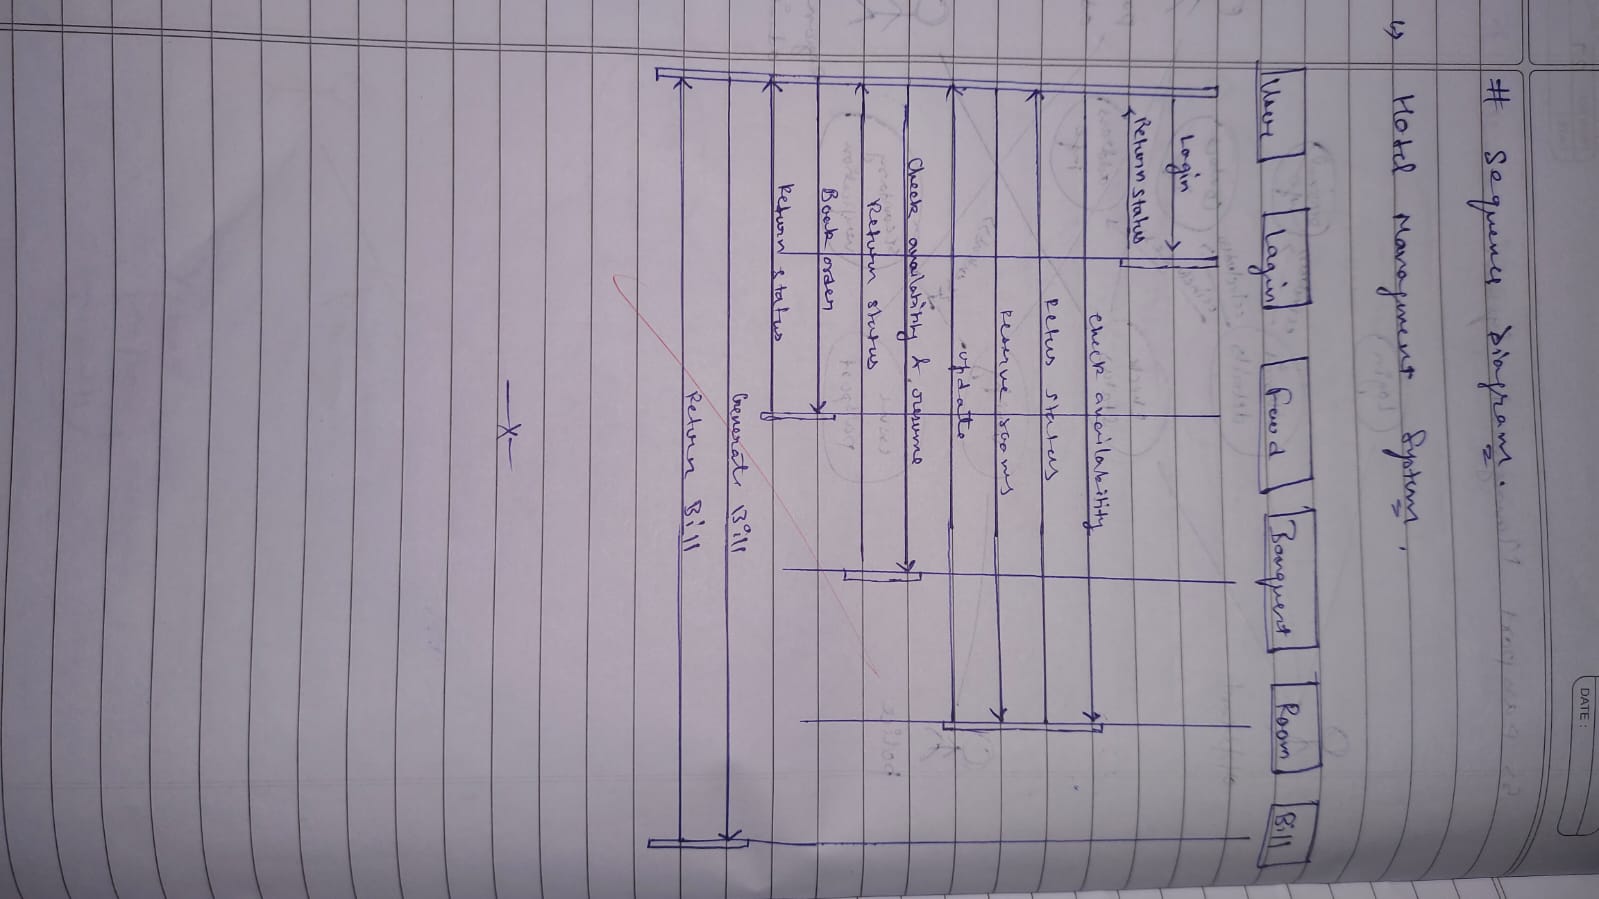 DATE :
# Sequence Diagram.
↳ Hotel Managment System.
User Login Food Banquest Room Bill
Login
Return status
check availability
Retus status
reserve rooms
update
check availability & reserve
Return status
Book order
Return status
Generate Bill
Return Bill